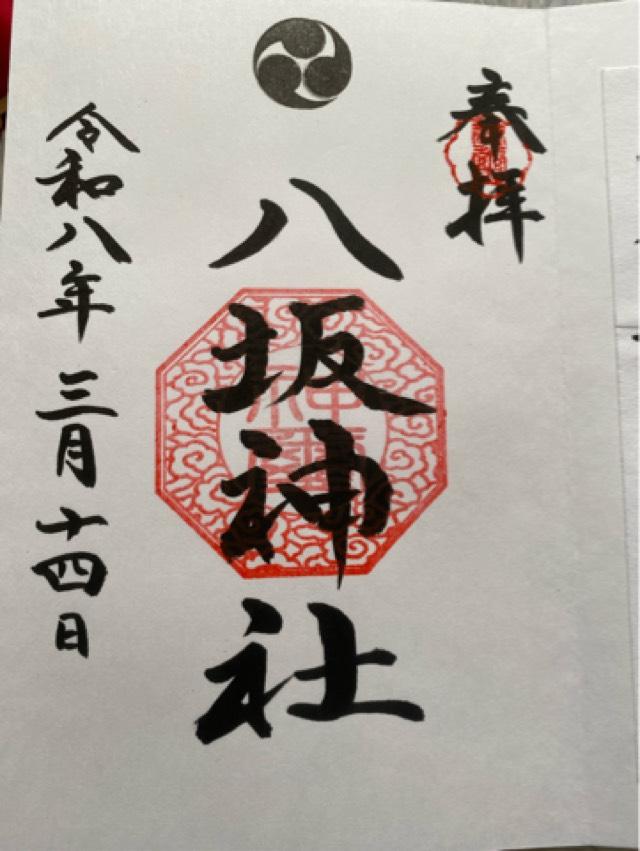 奉拝
八坂神社
令和八年三月十四日